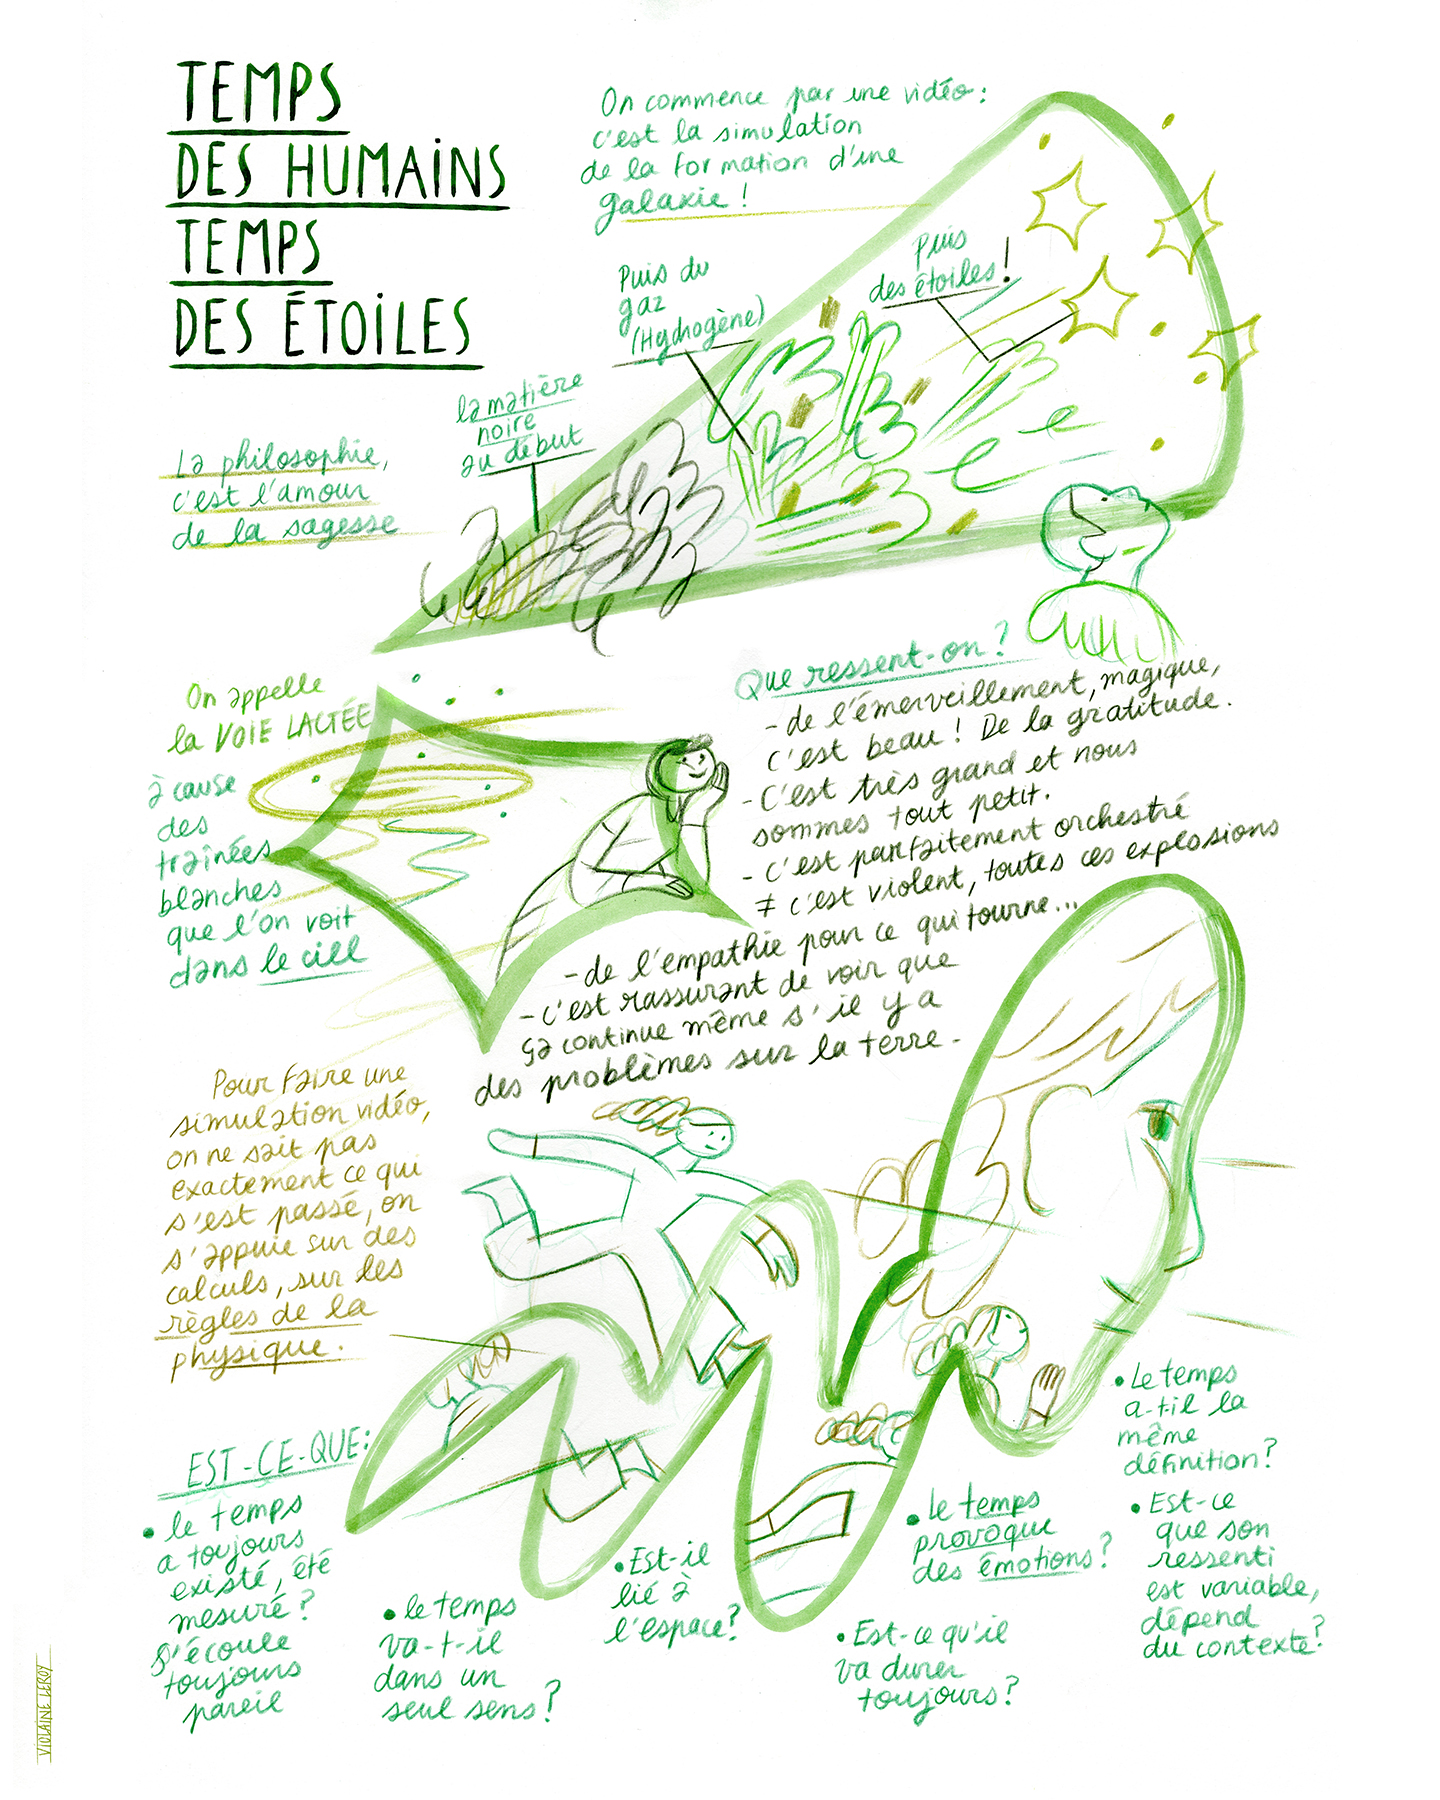 TEMPS
DES HUMAiNS
TEMPS
DES ÉTOiLES
On commence par une vidéo:
c'est la simulation
de la formation d'une
galaxie !
Puis
des étoiles!
Puis du
gaz
(Hydrogène)
la matière
noire
au début
La philosophie,
c'est l'amour
de la sagesse
On appelle
la VOIE LACTÉE
à cause
des
traînées
blanches
que l'on voit
dans le ciel
Que ressent-on?
- de l'émerveillement, magique,
c'est beau! De la gratitude.
- C'est très grand et nous
sommes tout petit.
- c'est parfaitement orchestré
≠ c'est violent, toutes ces explosions
- de l'empathie pour ce qui tourne...
- c'est rassurant de voir que
ça continue même s'il y a
des problèmes sur la terre.
Pour faire une
simulation vidéo,
on ne sait pas
exactement ce qui
s'est passé, on
s'appuie sur des
calculs, sur les
règles de la
physique.
EST-CE-QUE:
• le temps
a toujours
existé, été
mesuré?
S'écoule
toujours
pareil
• le temps
va-t-il
dans un
seul sens?
• Est-il
lié à
l'espace?
• le temps
provoque
des émotions?
• Est-ce qu'il
va durer
toujours?
• Le temps
a-t-il la
même
définition?
• Est-ce
que son
ressenti
est variable,
dépend
du contexte?
VIOLAINE LEROY